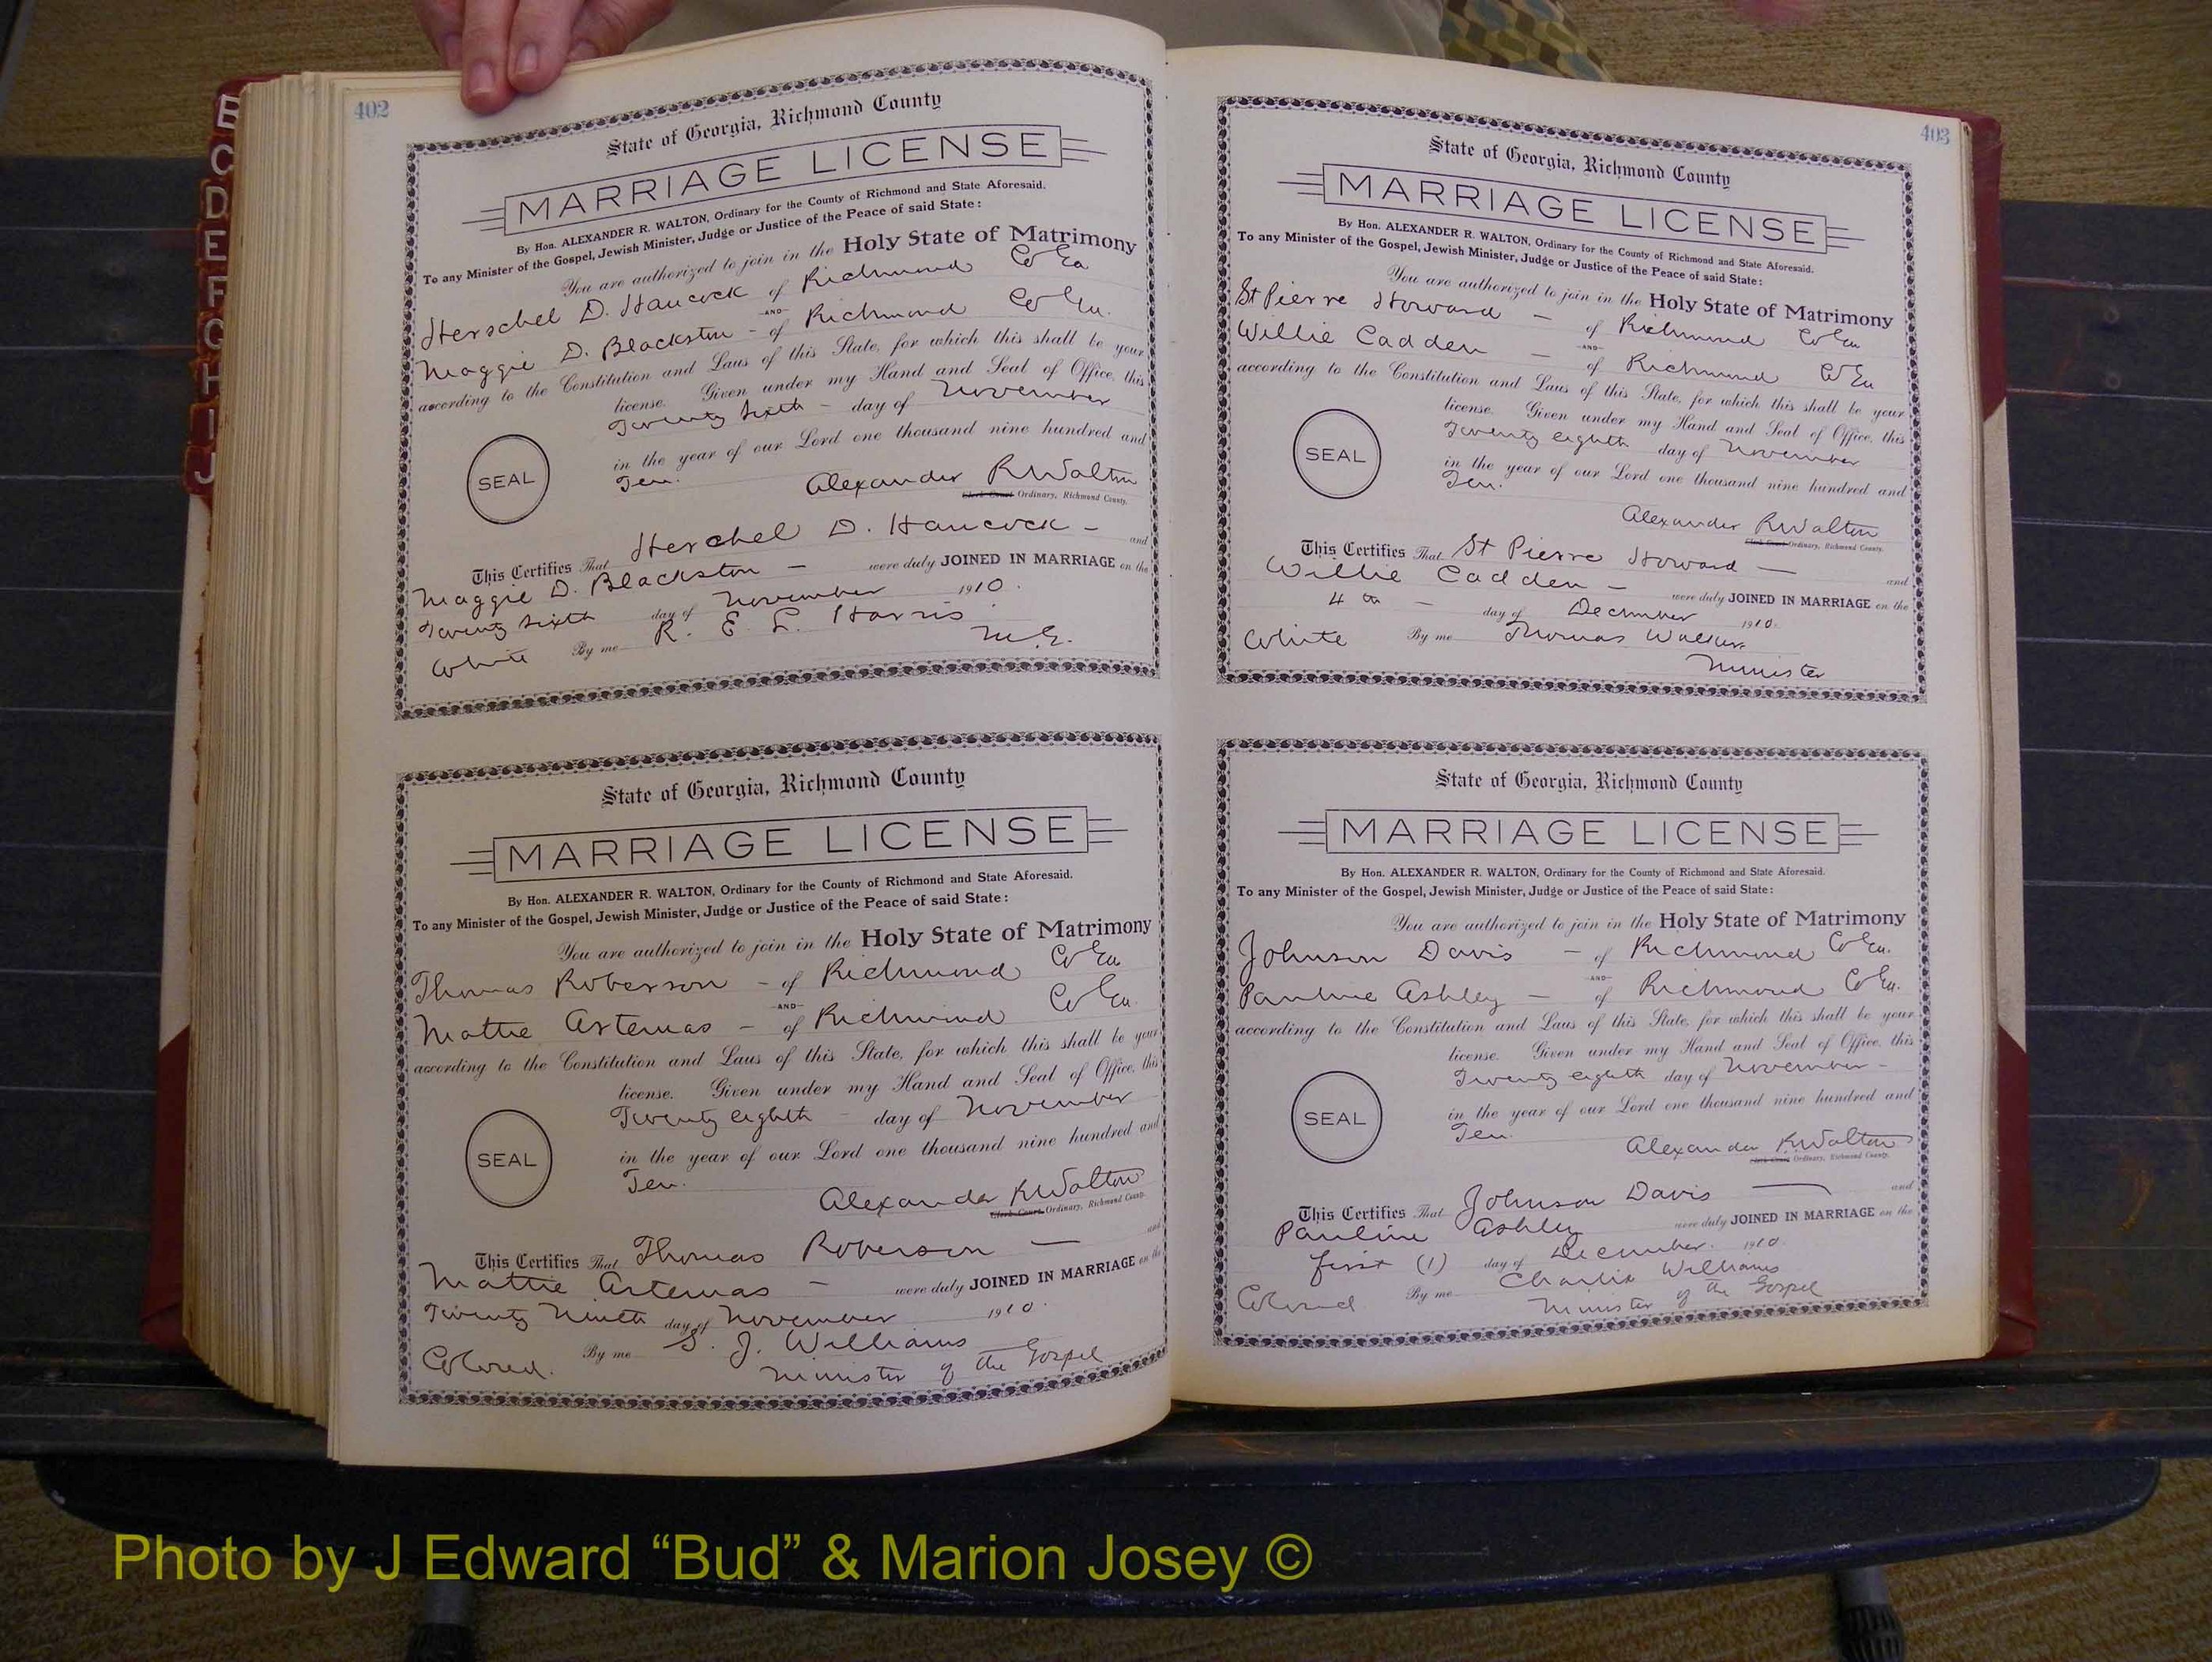 B
C
D
E
F
G
H
I
J
402
State of Georgia, Richmond County
MARRIAGE LICENSE
By Hon. ALEXANDER R. WALTON, Ordinary for the County of Richmond and State Aforesaid.
To any Minister of the Gospel, Jewish Minister, Judge or Justice of the Peace of said State:
You are authorized to join in the Holy State of Matrimony
Herschel D. Hancock of Richmond Co Ga
-AND-
Maggie D. Blackston - of Richmond Co Ga.
according to the Constitution and Laws of this State, for which this shall be your
license. Given under my Hand and Seal of Office, this
Twenty Sixth - day of November
in the year of our Lord one thousand nine hundred and
Ten.
SEAL
Alexander R Walton
Clerk Court Ordinary, Richmond County.
This Certifies That Herschel D. Hancock - and
Maggie D. Blackston - were duly JOINED IN MARRIAGE on the
Twenty Sixth day of November 1910.
White By me R. E. L. Harris
M.G.
State of Georgia, Richmond County
MARRIAGE LICENSE
By Hon. ALEXANDER R. WALTON, Ordinary for the County of Richmond and State Aforesaid.
To any Minister of the Gospel, Jewish Minister, Judge or Justice of the Peace of said State:
You are authorized to join in the Holy State of Matrimony
Thomas Roberson - of Richmond Co Ga
-AND-
Mattie Artemas - of Richmond Co Ga.
according to the Constitution and Laws of this State, for which this shall be your
license. Given under my Hand and Seal of Office, this
Twenty eighth - day of November
in the year of our Lord one thousand nine hundred and
Ten.
SEAL
Alexander R Walton
Clerk Court Ordinary, Richmond County.
This Certifies That Thomas Roberson - and
Mattie Artemas - were duly JOINED IN MARRIAGE on the
Twenty Ninth day of November 1910.
Colored. By me S. J. Williams
Minister of the Gospel
403
State of Georgia, Richmond County
MARRIAGE LICENSE
By Hon. ALEXANDER R. WALTON, Ordinary for the County of Richmond and State Aforesaid.
To any Minister of the Gospel, Jewish Minister, Judge or Justice of the Peace of said State:
You are authorized to join in the Holy State of Matrimony
St Pierre Howard - of Richmond Co Ga
-AND-
Willie Cadden - of Richmond Co Ga
according to the Constitution and Laws of this State, for which this shall be your
license. Given under my Hand and Seal of Office, this
Twenty eighth day of November
in the year of our Lord one thousand nine hundred and
Ten.
SEAL
Alexander R Walton
Clerk Court Ordinary, Richmond County.
This Certifies That St Pierre Howard - and
Willie Cadden - were duly JOINED IN MARRIAGE on the
4th - day of December 1910.
White By me Thomas Walker
Minister
State of Georgia, Richmond County
MARRIAGE LICENSE
By Hon. ALEXANDER R. WALTON, Ordinary for the County of Richmond and State Aforesaid.
To any Minister of the Gospel, Jewish Minister, Judge or Justice of the Peace of said State:
You are authorized to join in the Holy State of Matrimony
Johnson Davis - of Richmond Co Ga.
-AND-
Pauline Ashley - of Richmond Co Ga.
according to the Constitution and Laws of this State, for which this shall be your
license. Given under my Hand and Seal of Office, this
Twenty eighth day of November -
in the year of our Lord one thousand nine hundred and
Ten.
SEAL
Alexander R Walton
Clerk Court Ordinary, Richmond County.
This Certifies That Johnson Davis - and
Pauline Ashley were duly JOINED IN MARRIAGE on the
first (1) day of December. 1910.
Colored By me Charlie Williams
Minister of the Gospel
Photo by J Edward “Bud” & Marion Josey ©